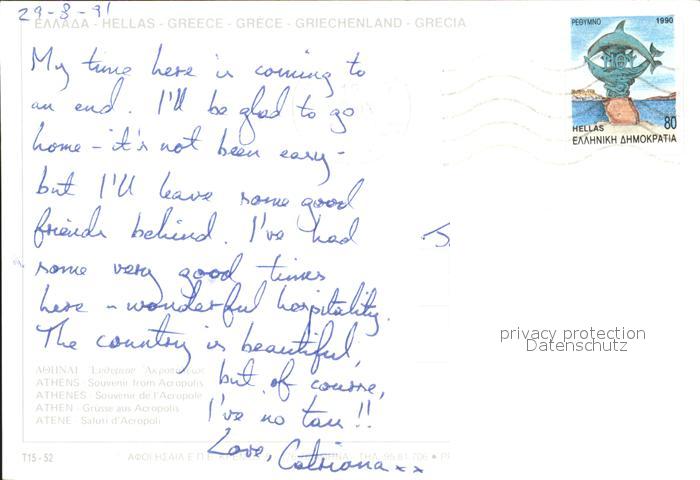 29-8-91
ΕΛΛΑΔΑ - HELLAS - GREECE - GRÈCE - GRIECHENLAND - GRECIA
My time here is coming to
an end. I'll be glad to go
home - it's not been easy -
but I'll leave some good
friends behind. I've had
some very good times
here - wonderful hospitality.
The country is beautiful,
but of course,
I've no tan!!
Love, Catriona xx
ΑΘΗΝΑΙ
ATHENS - Souvenir from Acropolis
ATHENES - Souvenir de l'Acropole
ATHEN - Grüsse aus Acropolis
ATENE - Saluti d'Acropoli
T15 - 52
ΡΕΘΥΜΝΟ 1990
HELLAS 80
ΕΛΛΗΝΙΚΗ ΔΗΜΟΚΡΑΤΙΑ
privacy protection
Datenschutz